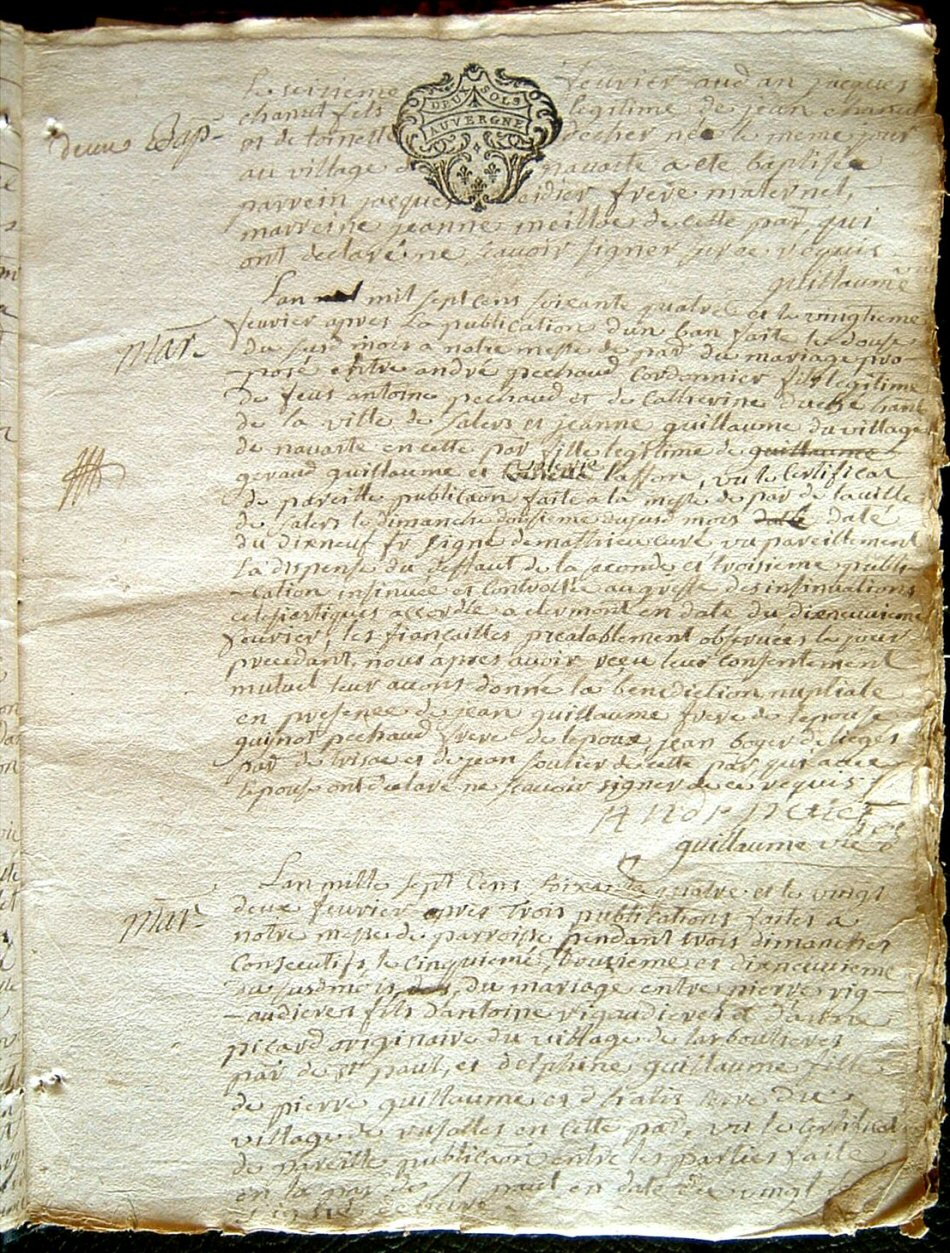 Le seisieme fevrier aud an jacques
DEUX SOLS
AUVERGNE
chanut fils legitime de jean
deux Bap
et de toinette né le meme jour
au village de navaste a ete baptisée
parrein jacques frere maternel,
marreine jeanne de cette par, qui
ont declaré ne scavoir signer de ce requis
guillaume
Lan mil sept cens soixante quatre et le vingtieme
fevrier apres la publication dun ban faite le douse
mar
du susd mois a notre messe de par du mariage pro
-posé entre andre pechaud Cordonnier fils legitime
de feus antoine pechaud et de Catherine
de la ville de salers et jeanne guillaume du village
de navaste en cette par fille legitime de guillaume
geraud guillaume et Laffon, vu le Certificat
de pareille publicaon faite a la messe de par de la ville
de salers le dimanche dousieme dususd mois daté
du dixneuf fr signé demathieu curé vu pareillement
La dispense du deffaut de la seconde et troisieme publi
-cation insinuée et Controllée au greffe des insinuations
eclesiastiques accordée a clermont en date du dixneuvieme
fevrier, les fiançailles prealablement observees le jour
precedant, nous apres avoir reçu leur consentement
mutuel leur avons donné la benediction nuptiale
en presence de jean guillaume frere de lepouse
guinot pechaud frere de lepoux, jean boyer de lieges
par de trisac et de jean soulier de cette par, qui avec
lepouse ont declaré ne scavoir signer de ce requis
guillaume vic
Lan mille sept Cens soixante quatre et le vingt
deux fevrier apres trois publications faites a
mar
notre messe de parroisse pendant trois dimanches
Consecutifs, le cinquieme, dousieme et dixneuvieme
du susd mois, du mariage entre pierre rig-
-audieres fils dantoine rigaudieres et
picard originaire du village de larboulieres
par de st paul, et delphine guillaume fille
de pierre guillaume et dhalis du
village de rusolles en cette par, vu le certificat
de pareille publicaon entre les parties faite
en la par de st paul en date du vingt